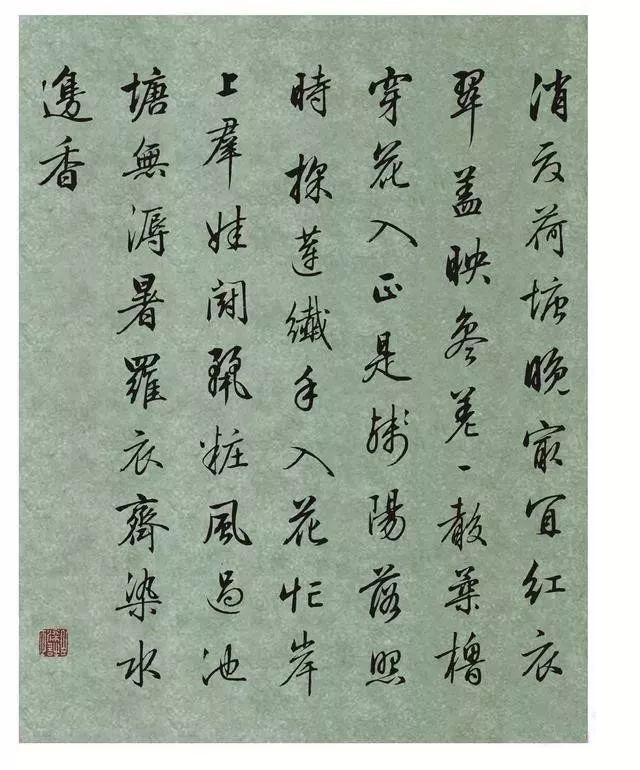 消夏荷塘晚最宜紅衣
翠蓋映參差一聲柔櫓
穿花入正是斜陽落照
時採蓮纖手入花忙岸
上羣娃鬪靚粧風過池
塘無溽暑羅衣齊染水
邊香